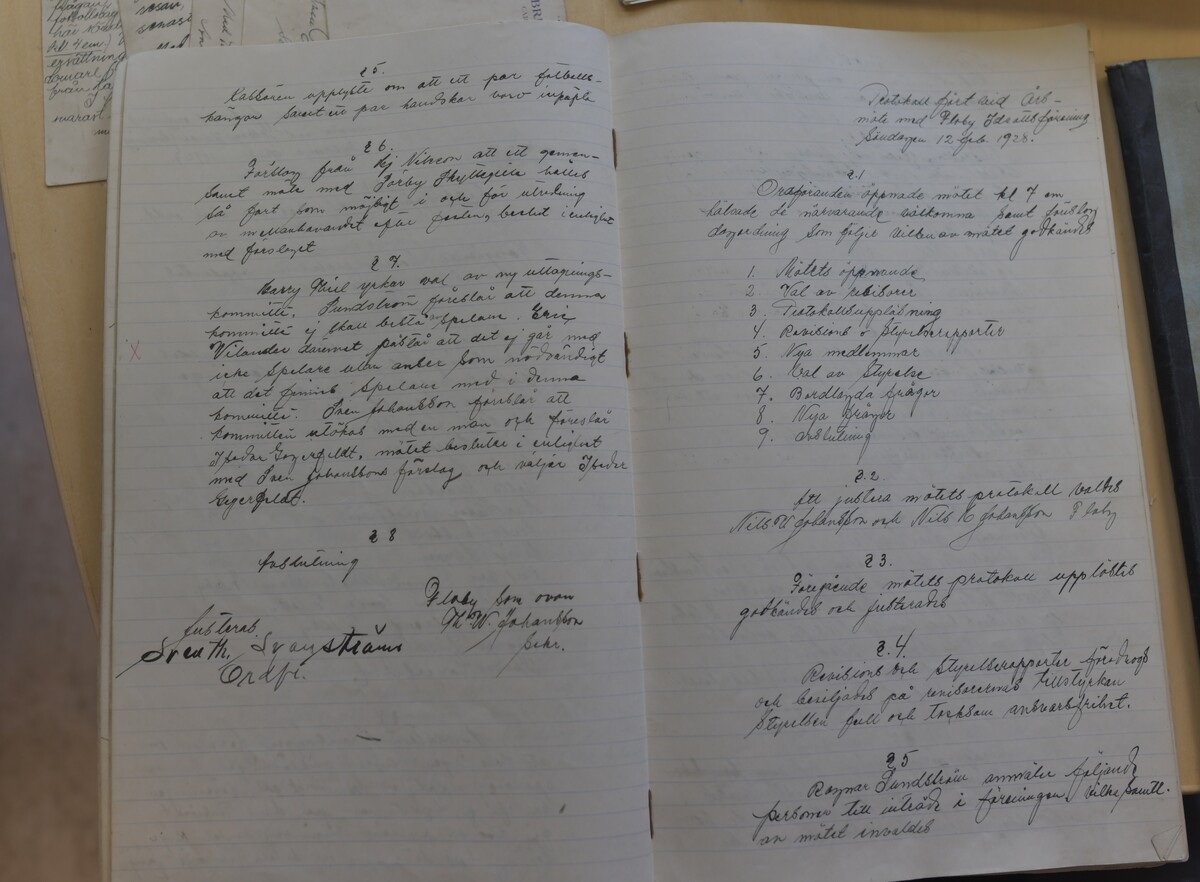 § 5.
Kassören upplyste om att ett par fotbolls-
hängor samt en par handskar voro inköpta
§ 6.
Förslag från Hj Nilsson att ett gemen-
samt möte med Torby Skyttegille hålles
så fort som möjligt i och för utredning
av mellanhavandet efter festen, beslöt i enlighet
med förslaget
§ 7.
Harry Thiel yrkar val av ny uttagnings-
kommitté, Sundström föreslår att denna
kommitté ej skall bestå spelare. Eric
Vilander däremot påstår att det ej går med
icke spelare utan anser som nödvändigt
att det finnes spelare med i denna
kommitté. Sven Johansson föreslår att
kommittén utökas med en man och föreslår
Isedor Segerfeldt, mötet beslutar i enlighet
med Sven Johanssons förslag och väljer Isedor
Segerfeldt.
§ 8
Avslutning
Floby som ovan
Th. W. Johansson
Sekr.
Justeras
Svanström
Ordf.
Protokoll fört vid Års-
möte med Floby Idrottsförening
Söndagen 12 feb. 1928.
§.1
Ordföranden öppnade mötet kl 7 em
hälsade de närvarande välkomna samt föreslog
dagordning som följer vilken av mötet godkändes
1. Mötets öppnande
2. Val av revisorer
3. Protokollsuppläsning
4. Revisions o Styrelserapporter
5 Nya medlemmar
6. Val av Styrelse
7. Bordlagda frågor
8 Nya frågor
9. Avslutning
§.2.
Att justera mötets protokoll valdes
Nils W Johansson och Nils E Johansson Floby
§ 3.
Föregående mötets protokoll upplästes
godkändes och justerades
§.4.
Revisions och Styrelserapporter föredrogs
och beviljades på revisorernes tillstyrkan
Styrelsen full och tacksam ansvarsfrihet.
§ 5
Ragnar Sundström anmäler följande
personer till inträde i föreningen, vilka samtl.
av mötet invaldes